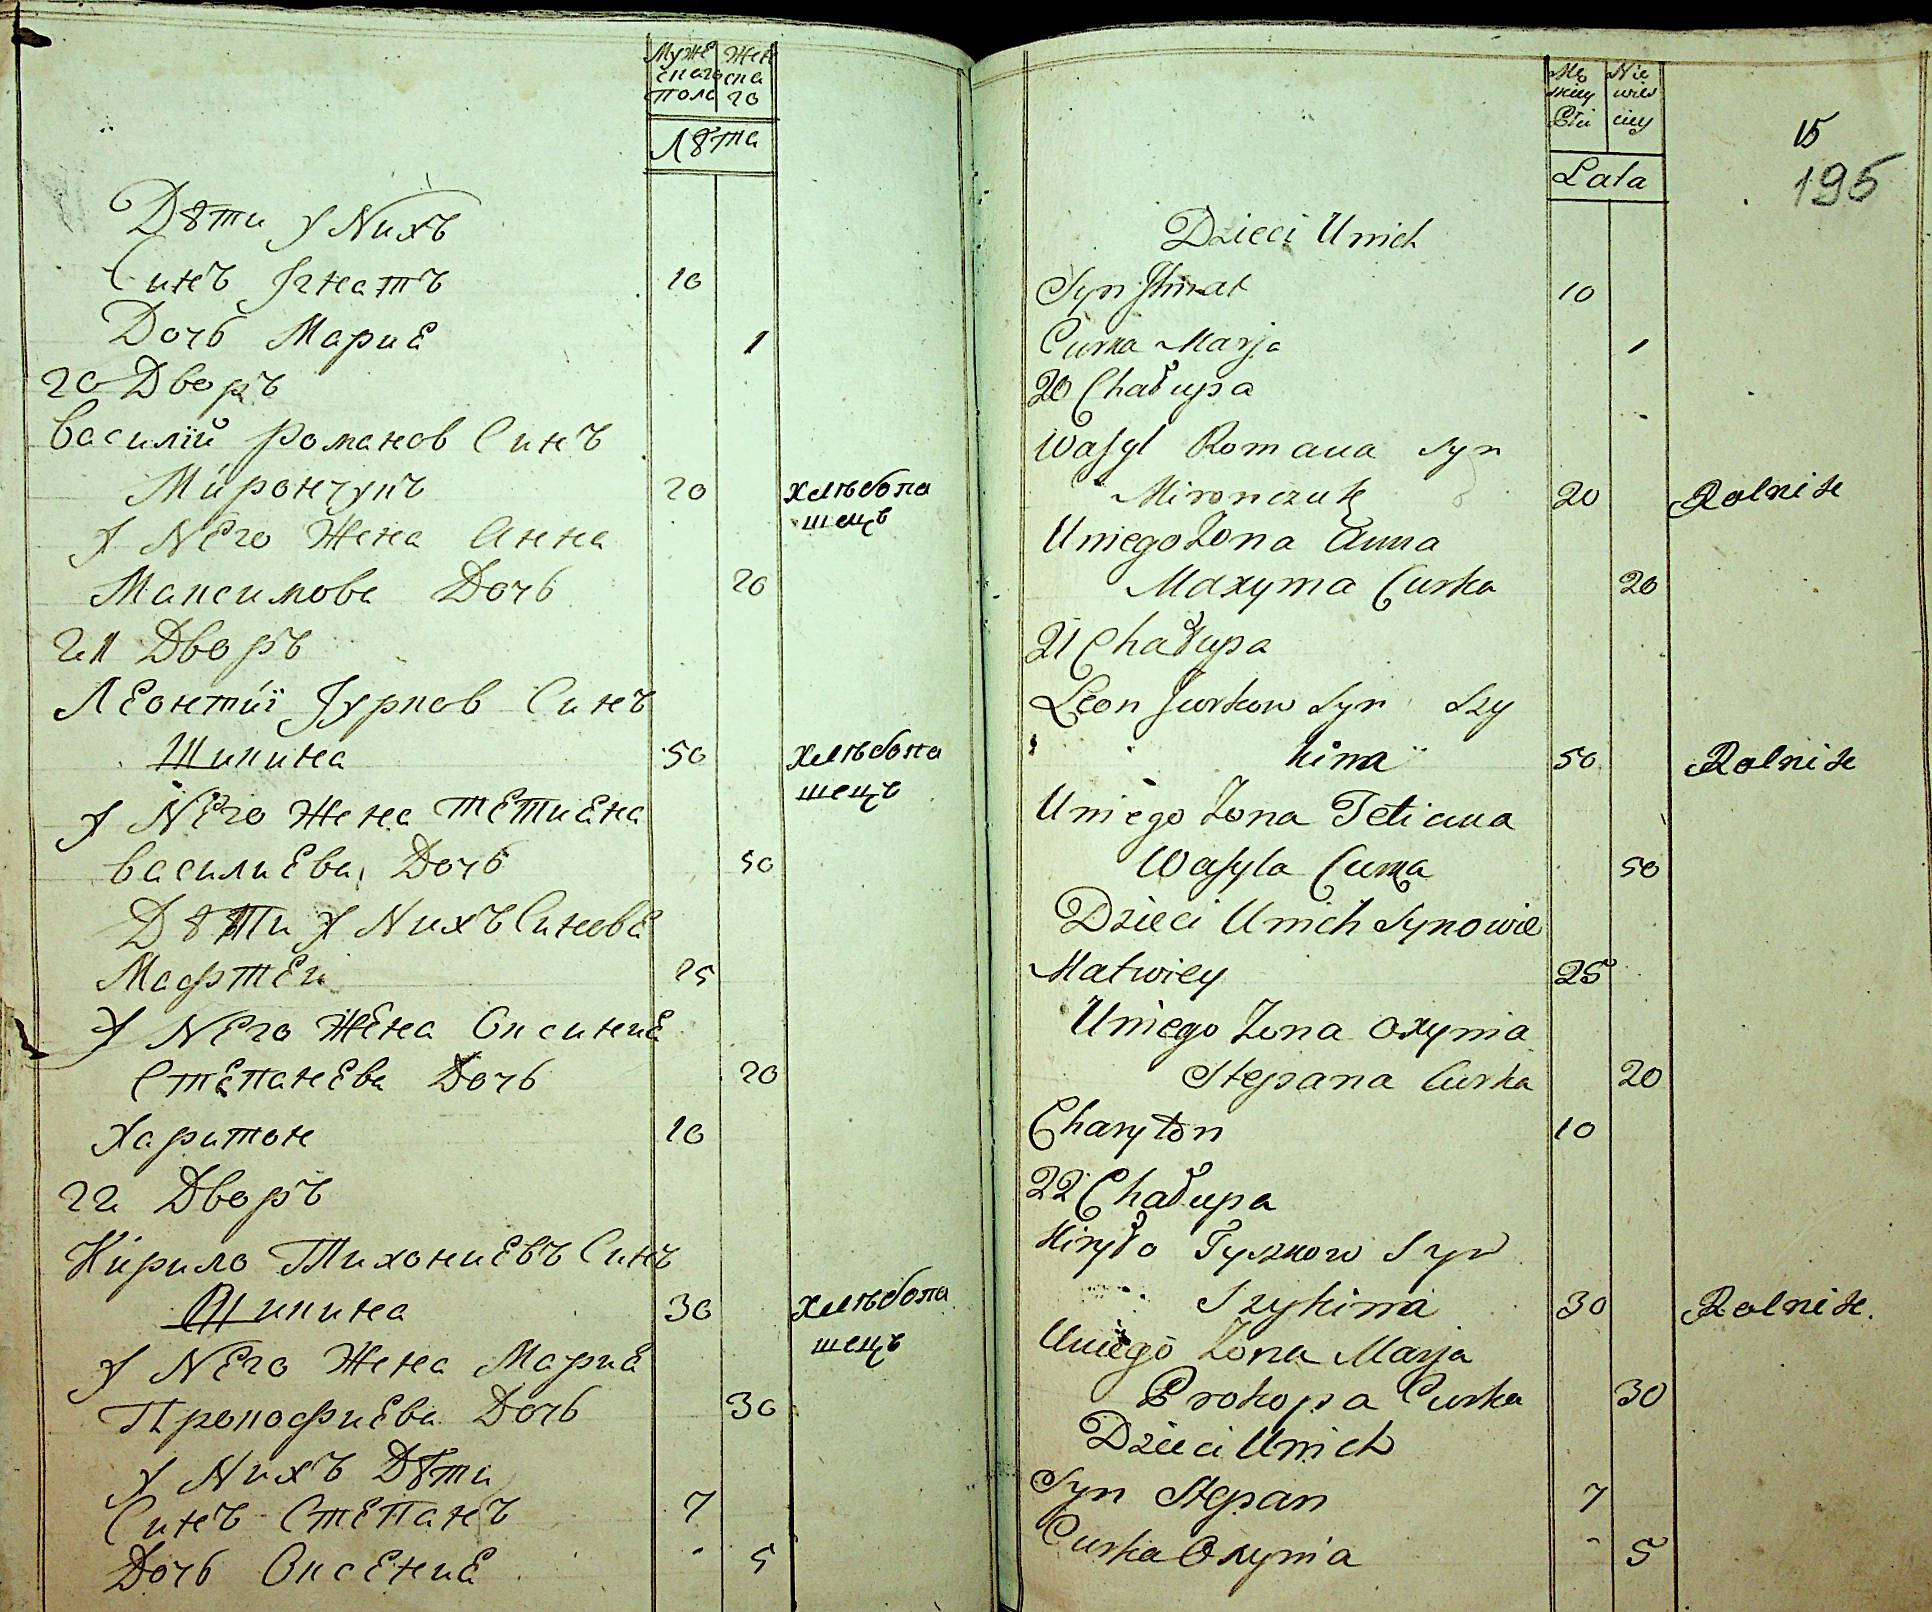 Муже Жен
скаго ска
пола го
Лѣта
Дѣти у Nихъ
Синъ Јгнатъ 10
Дочь Мариа 1
20 Дворъ
Василий Романов Синъ
Мирончукъ 20 хлѣбопа
шецъ
У Nего Жена Анна
Максимова Дочь 20
21 Дворъ
Леонтиї Јурков Синъ
Шикина 50 хлѣбопа
шецъ
У Nего Жена Тетиана
Василиева Дочь 50
Дѣти У Nихъ Синове
Мафтеи 25
У Nего Жена Оксиния
Степанева Дочь 20
Харитон 10
22 Дворъ
Кирило Тихониевъ Синъ
Шикина 30 хлѣбопа
шецъ
У Nего Жена Мариа
Прокофиева Дочь 30
У Nихъ Дѣти
Синъ Степанъ 7
Дочь Оксения 5
Mę Nie
skiey wieś
Płci ciey
Lata
15
195
Dzieci Unich
Syn Ihnat 10
Curka Marja 1
20 Chałupa
Wasyl Romana syn
Mironczuk 20 Rolnik
Uniego Zona Anna
Maxyma Curka 20
21 Chałupa
Leon Jurkow Syn Szy
kina 50 Rolnik
Uniego Zona Tetiana
Wasyla Curka 50
Dzieci Unich Synowie
Matwiey 25
Uniego Zona Oxynia
Stepana Curka 20
Charyton 10
22 Chałupa
Kiryło Tyszkow Syn
Szykina 30 Rolnik
Uniego Zona Marja
Prokopa Curka 30
Dzieci Unich
Syn Stepan 7
Curka Oxynia 5